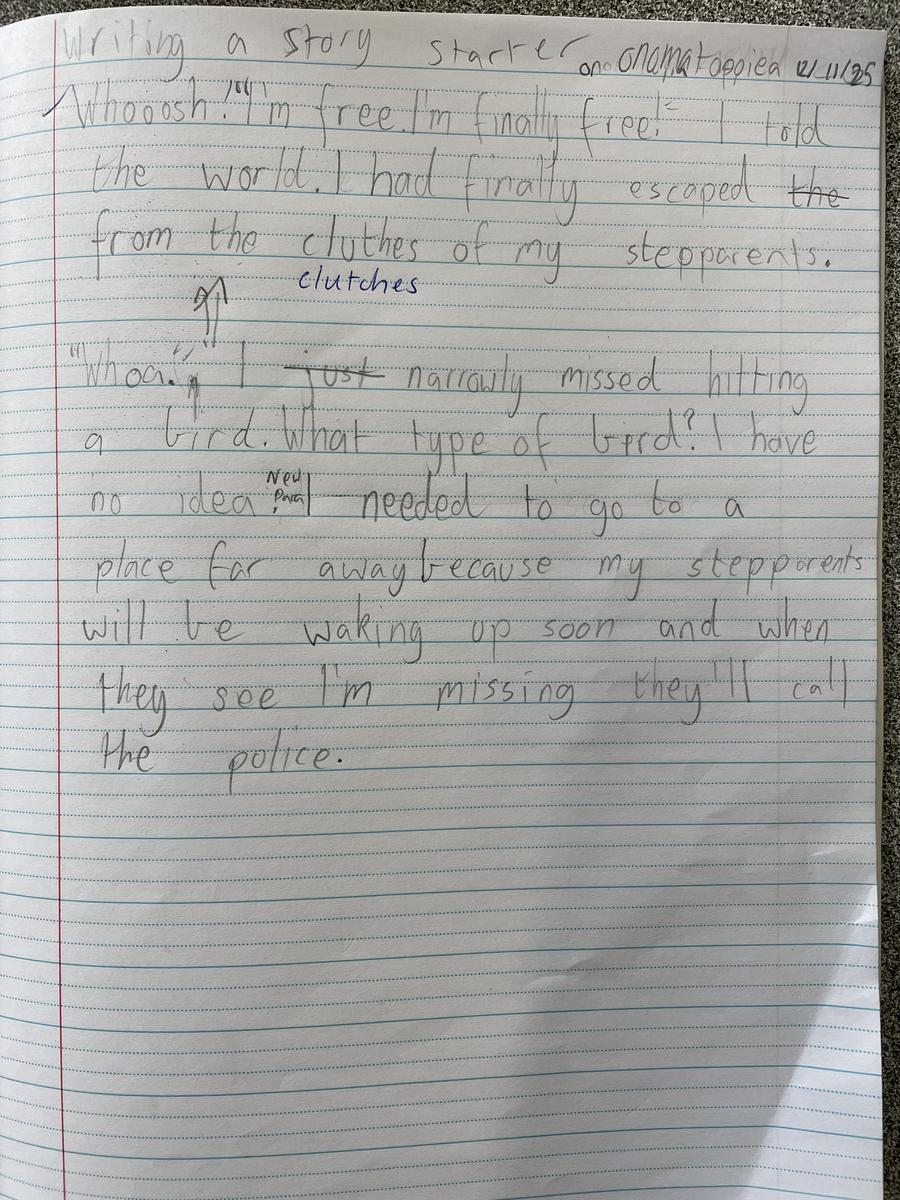 Writing a story starter ono onamatoppiea 12/11/25
Whooosh! "I'm free. I'm finally free!" I told
the world. I had finally escaped the
from the cluthes of my stepparents.
clutches
"Whoa." I just narrowly missed hitting
a bird. What type of bird? I have
no idea. New Para I needed to go to a
place far away because my stepparents
will be waking up soon and when
they see I'm missing they'll call
the police.